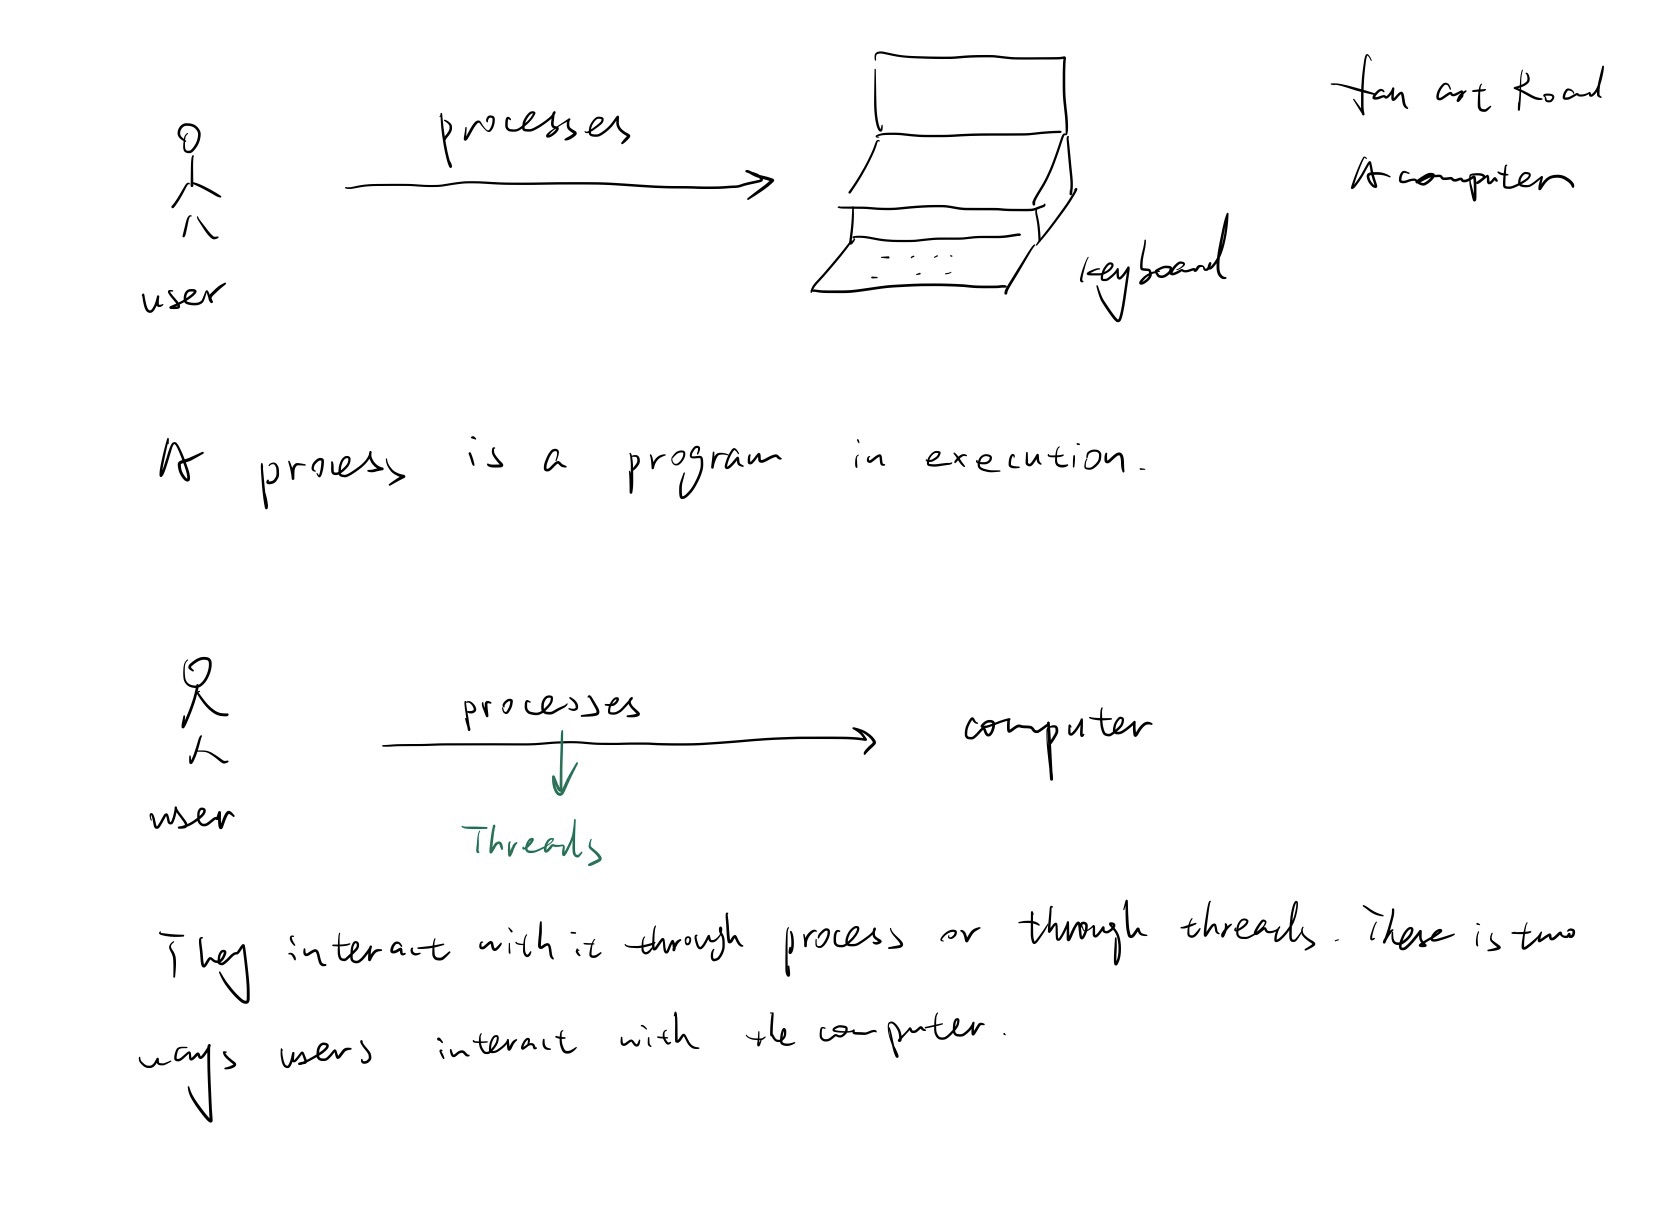 processes
fan art Road
A computer
keyboard
user
A process is a program in execution.
processes
computer
Threads
user
They interact with it through process or through threads. These is two
ways users interact with the computer.